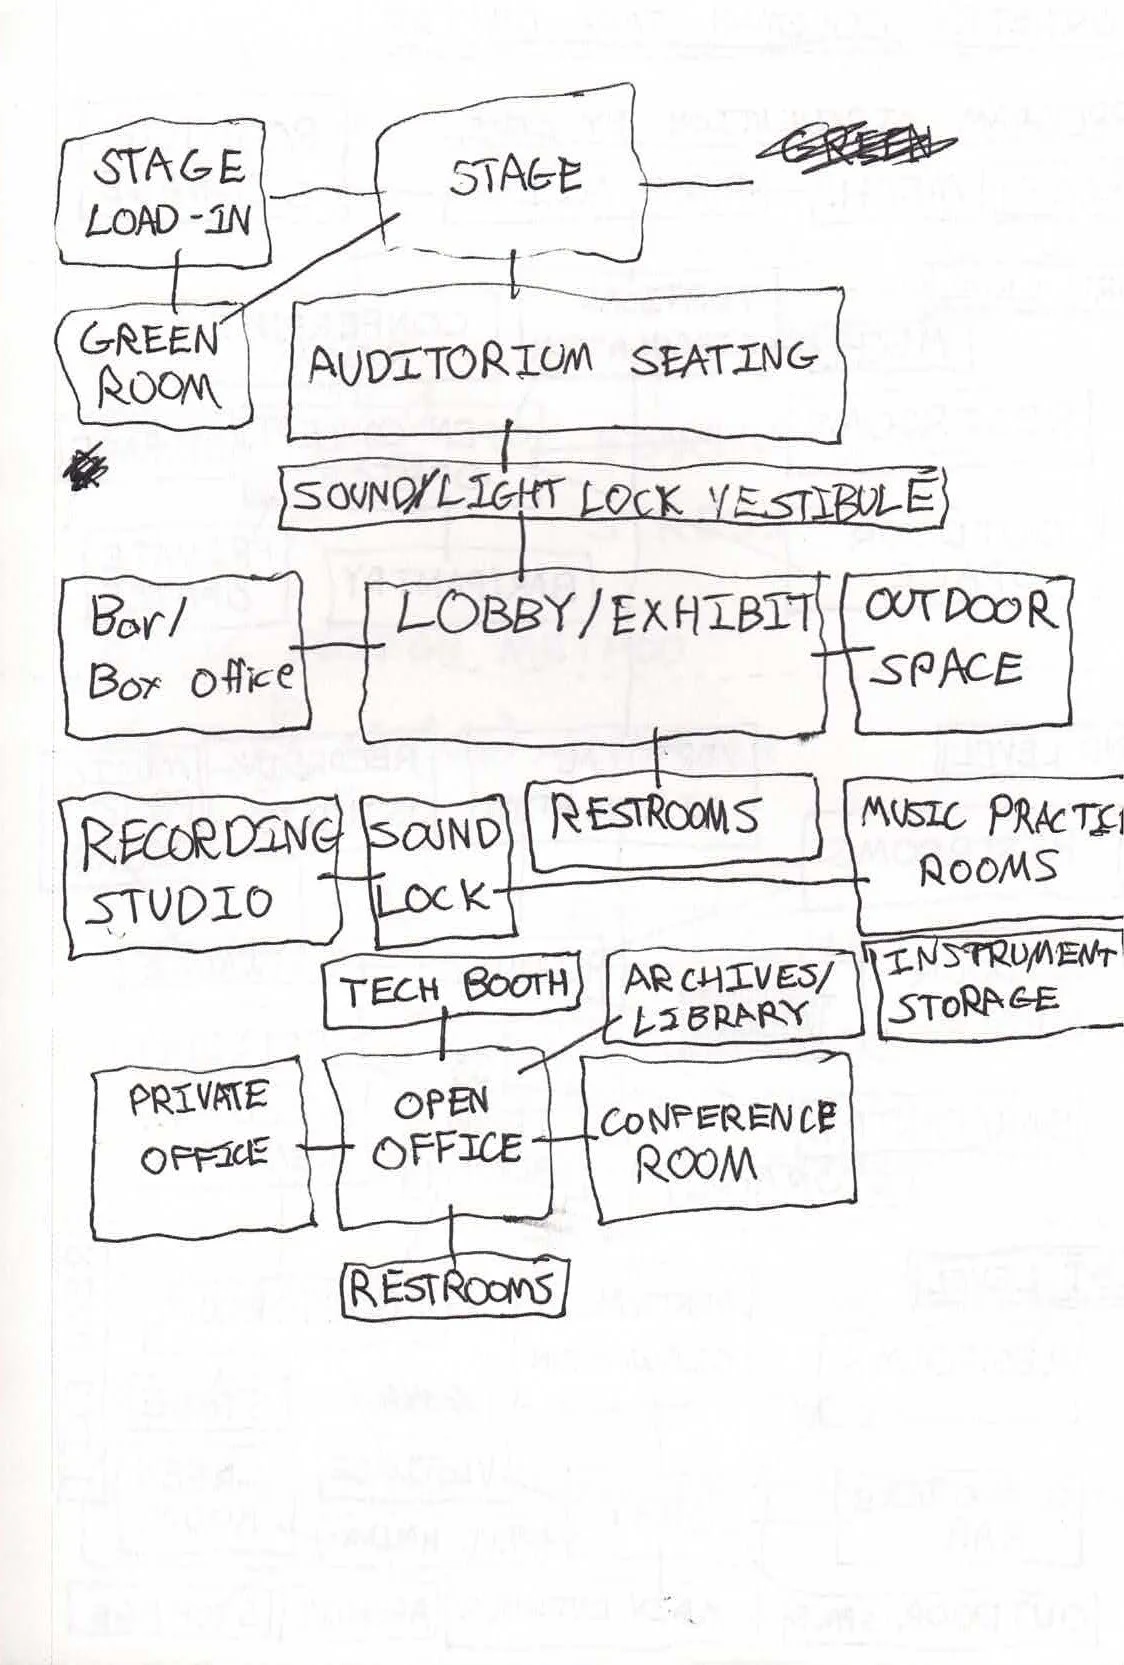 STAGE
LOAD-IN
STAGE
GREEN
GREEN
ROOM
AUDITORIUM SEATING
SOUND/LIGHT LOCK VESTIBULE
Bar/
Box office
LOBBY/EXHIBIT
OUTDOOR
SPACE
RECORDING
STUDIO
SOUND
LOCK
RESTROOMS
MUSIC PRACTI
ROOMS
TECH BOOTH
ARCHIVES/
LIBRARY
INSTRUMENT
STORAGE
PRIVATE
OFFICE
OPEN
OFFICE
CONFERENCE
ROOM
RESTROOMS